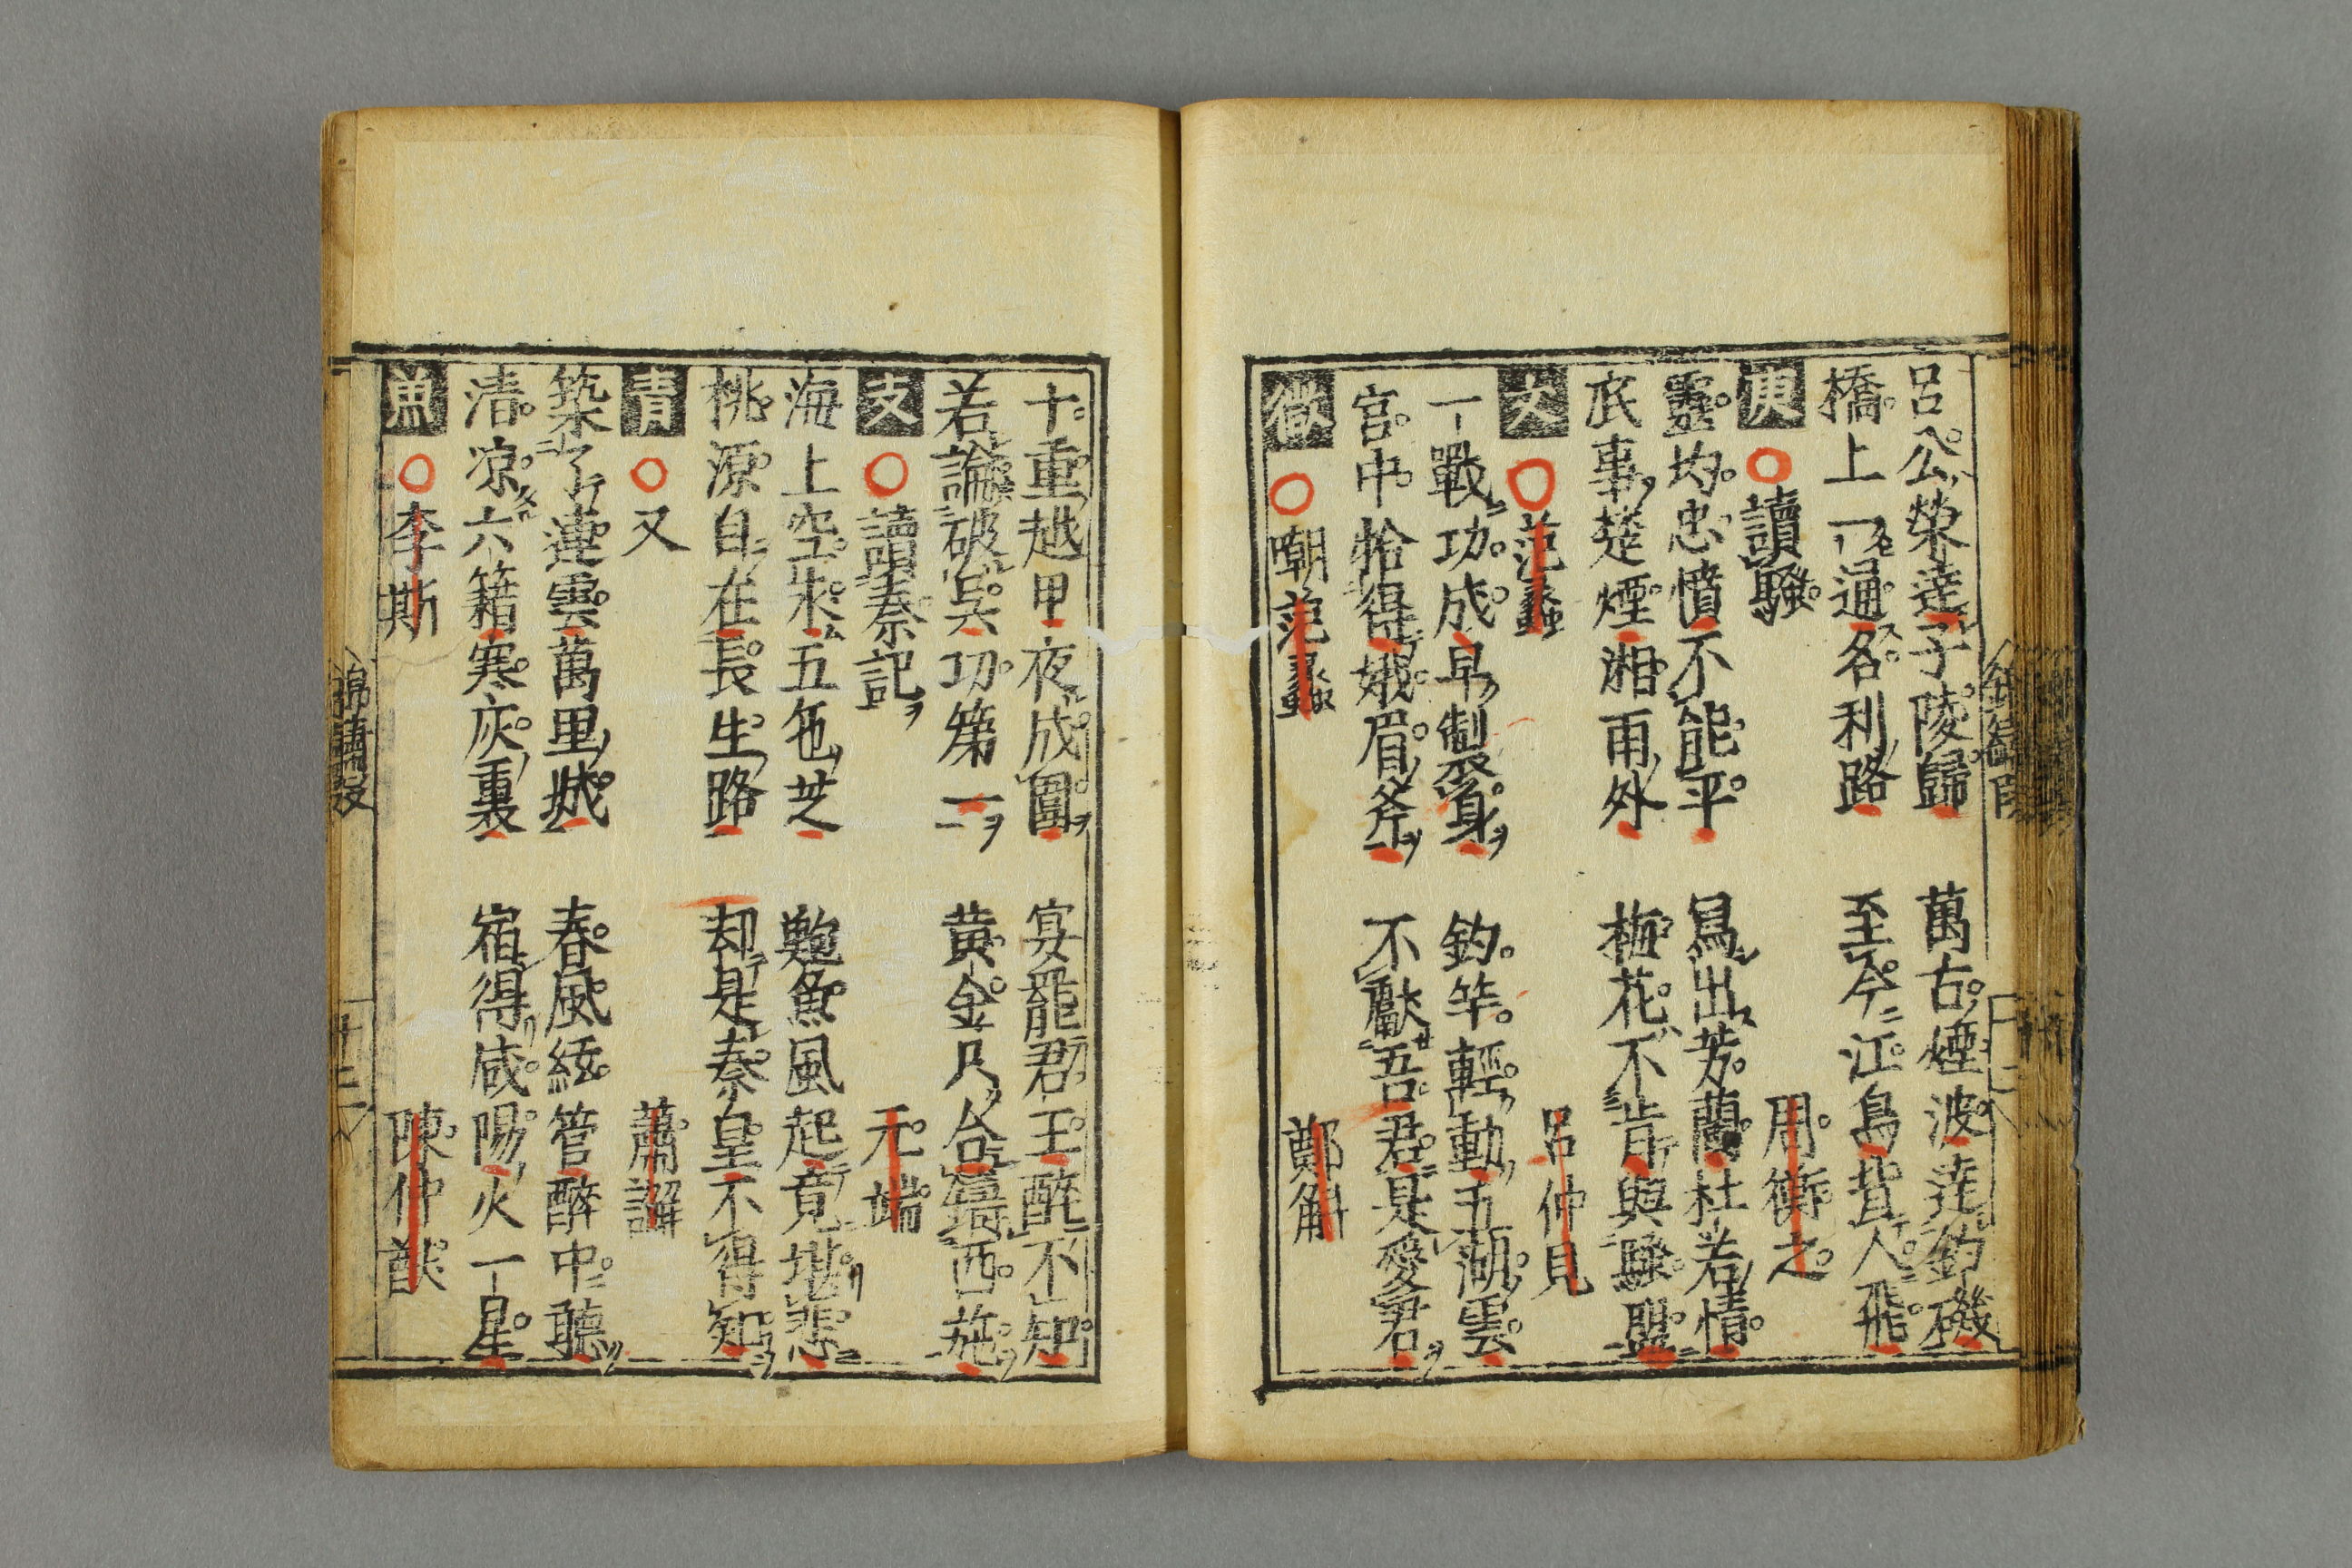 呂公榮達子陵歸 萬古煙波遶釣磯
橋上一通名利路 至今江鳥背人飛
庚 讀騷 周衡之
靈均忠憤不能平 寫出芳蘭杜若情
底事楚煙湘雨外 梅花不肯與騷盟
文 范蠡 呂仲見
一戰功成早製身 釣竿輕動五湖雲
宮中拾得娥眉斧 不獻吾君是愛君
微 嘲范蠡 鄭解
十重越甲夜成圍 宴罷君王醉不知
若論破吳功第一 黃金只合鑄西施
支 讀秦記 元端
海上空求五色芝 鮑魚風起竟堪悲
桃源自在長生路 却是秦皇不得知
青 又 蕭澥
築了連雲萬里城 春風絃管醉中聽
凄凉六籍寒灰裏 宿得咸陽火一星
魚 李斯 陳仲猷
錦繡段 十二